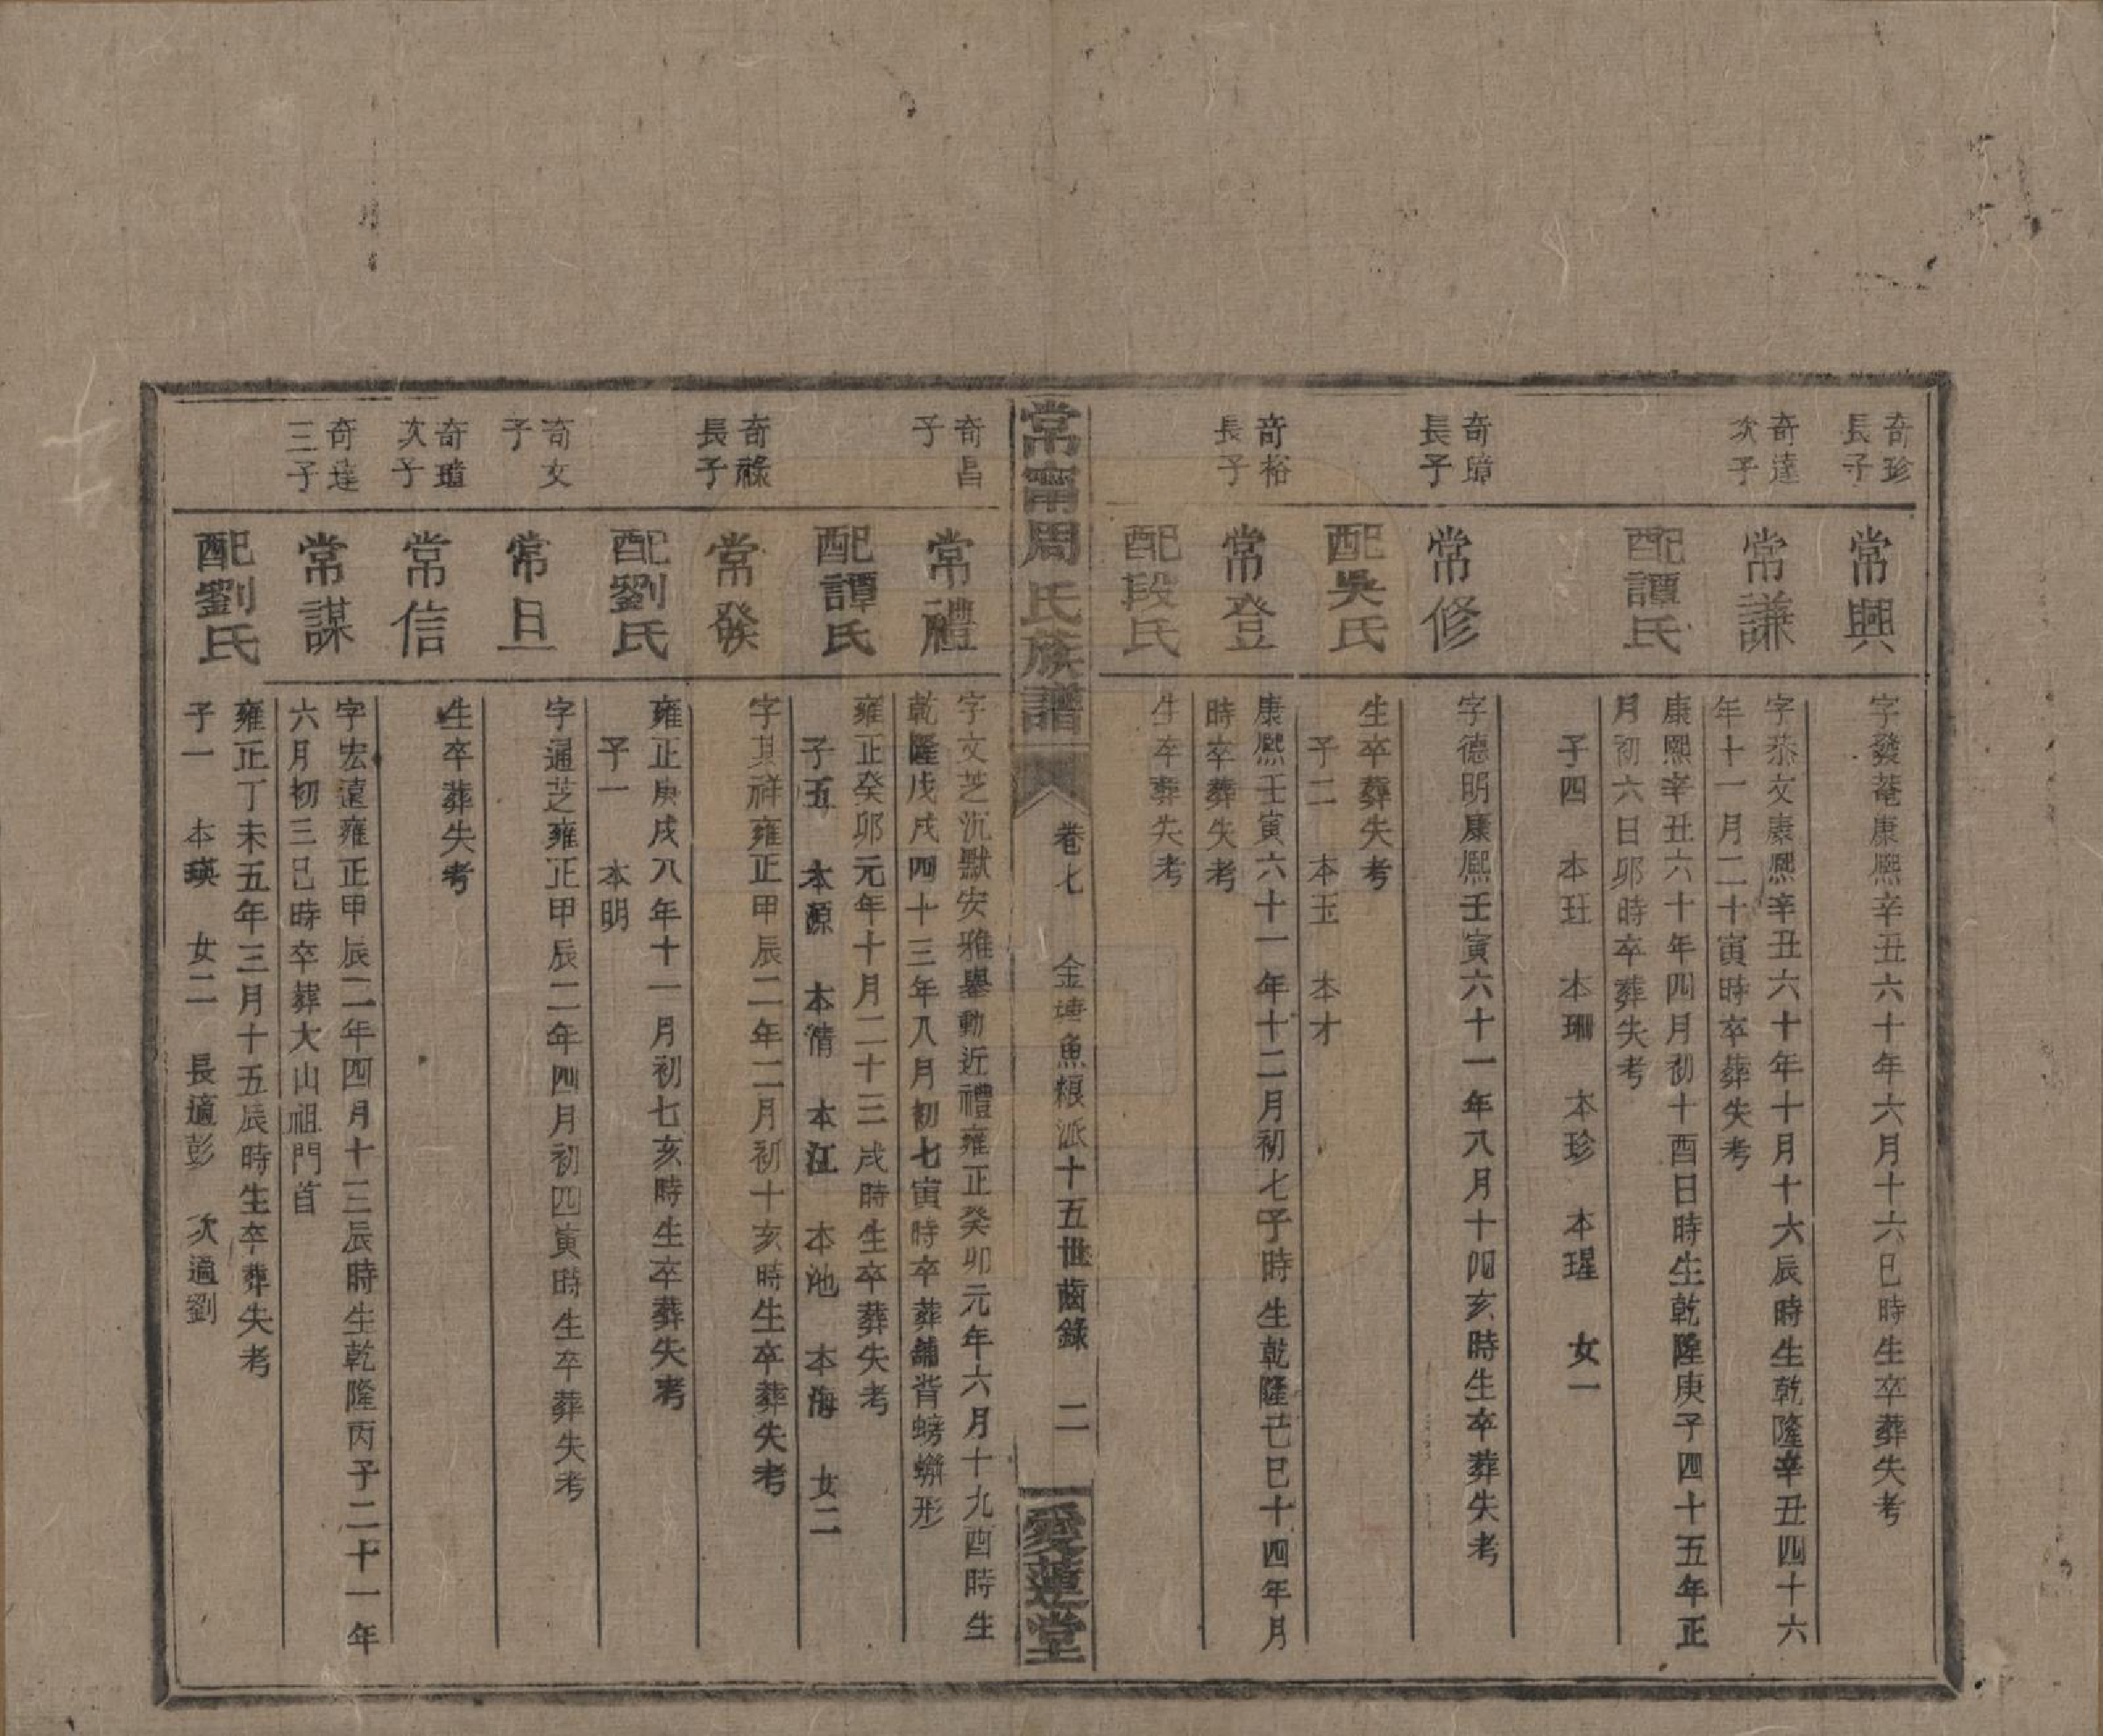 奇珍
長子
常興
字發菴康熙辛丑六十年六月十六巳時生卒葬失考
奇達
次子
常謙
字恭文康熙辛丑六十年十月十六辰時生乾隆辛丑四十六
年十一月二十寅時卒葬失考
配譚氏
康熙辛丑六十年四月初十酉日時生乾隆庚子四十五年正
月初六日卯時卒葬失考
子四 本玨 本珊 本珍 本瑆 女一
奇璋
長子
常修
字德明康熙壬寅六十一年八月十四亥時生卒葬失考
配吳氏
生卒葬失考
子二 本玉 本才
奇裕
長子
常登
康熙壬寅六十一年十二月初七子時生乾隆己巳十四年月
時卒葬失考
配段氏
生卒葬失考
常甯周氏族譜
卷七 金塘魚粮派十五世齒錄 二
愛蓮堂
奇昌
子
常禮
字文芝沉默安雅舉動近禮雍正癸卯元年六月十九酉時生
乾隆戊戌四十三年八月初七寅時卒葬鋪背螃蠏形
配譚氏
雍正癸卯元年十月二十三戌時生卒葬失考
子五 本源 本清 本江 本池 本海 女二
奇祿
長子
常發
字其祥雍正甲辰二年二月初十亥時生卒葬失考
配劉氏
雍正庚戌八年十一月初七亥時生卒葬失考
子一 本明
奇文
子
常旦
字通芝雍正甲辰二年四月初四寅時生卒葬失考
奇璋
次子
常信
生卒葬失考
奇達
三子
常謀
字宏遠雍正甲辰二年四月十三辰時生乾隆丙子二十一年
六月初三巳時卒葬大山祖門首
配劉氏
雍正丁未五年三月十五辰時生卒葬失考
子一 本瑛 女二 長適彭 次適劉